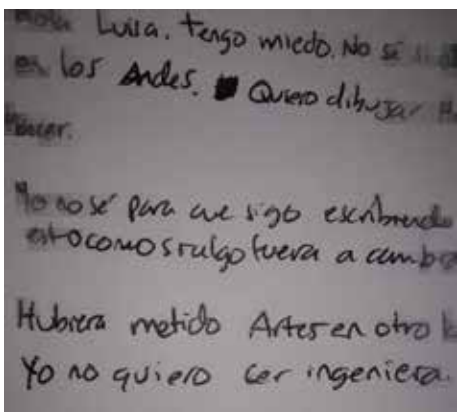 Hola Luisa. Tengo miedo. No sé si
en los Andes. Quiero dibujar
hacer.
Yo no sé para que sigo escribiendo
esto como si algo fuera a cambia
Hubiera metido Artes en otro l
Yo no quiero ser ingeniera.